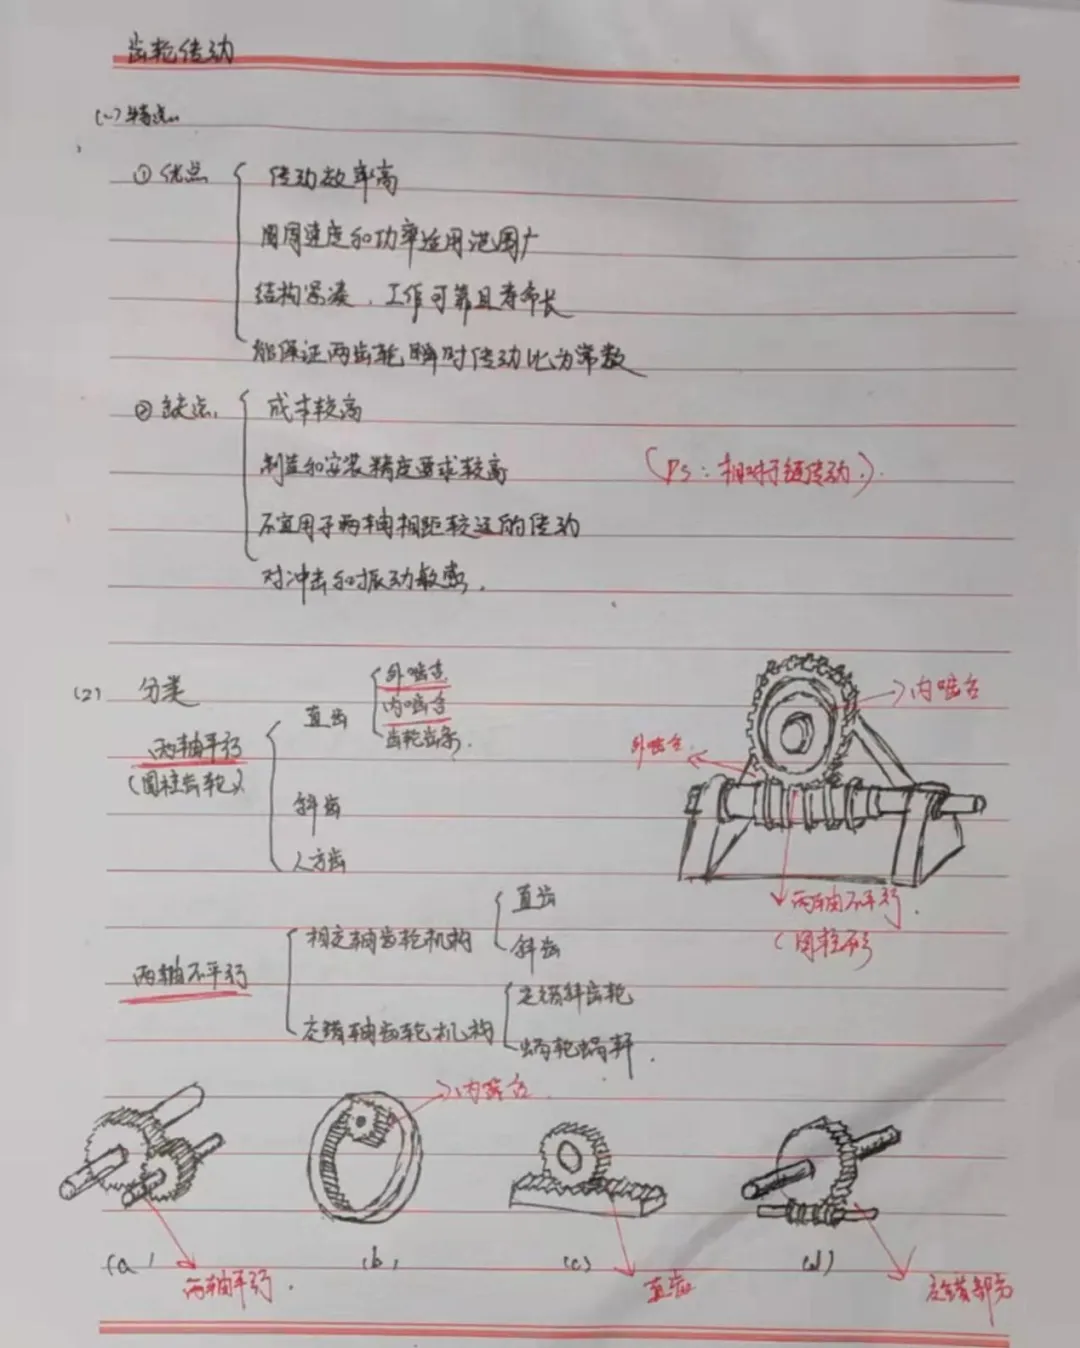 齿轮传动
(一)特点
① 优点
传动效率高
圆周速度和功率适用范围广
结构紧凑、工作可靠且寿命长
能保证两齿轮瞬时传动比为常数
② 缺点
成本较高
制造和安装精度要求较高
(PS:相对于链传动)
不宜用于两轴相距较远的传动
对冲击和振动敏感.
(2) 分类
两轴平行
(圆柱齿轮)
直齿
外啮合
内啮合
齿轮齿条.
斜齿
人方齿
内啮合
外啮合
两轴不平行.
(圆柱形
两轴不平行
相交轴齿轮机构
直齿
斜齿
交错轴齿轮机构
交错斜齿轮
蜗轮蜗杆.
内啮合
(a)
两轴平行.
(b)
(c)
直齿
(d)
交错部分